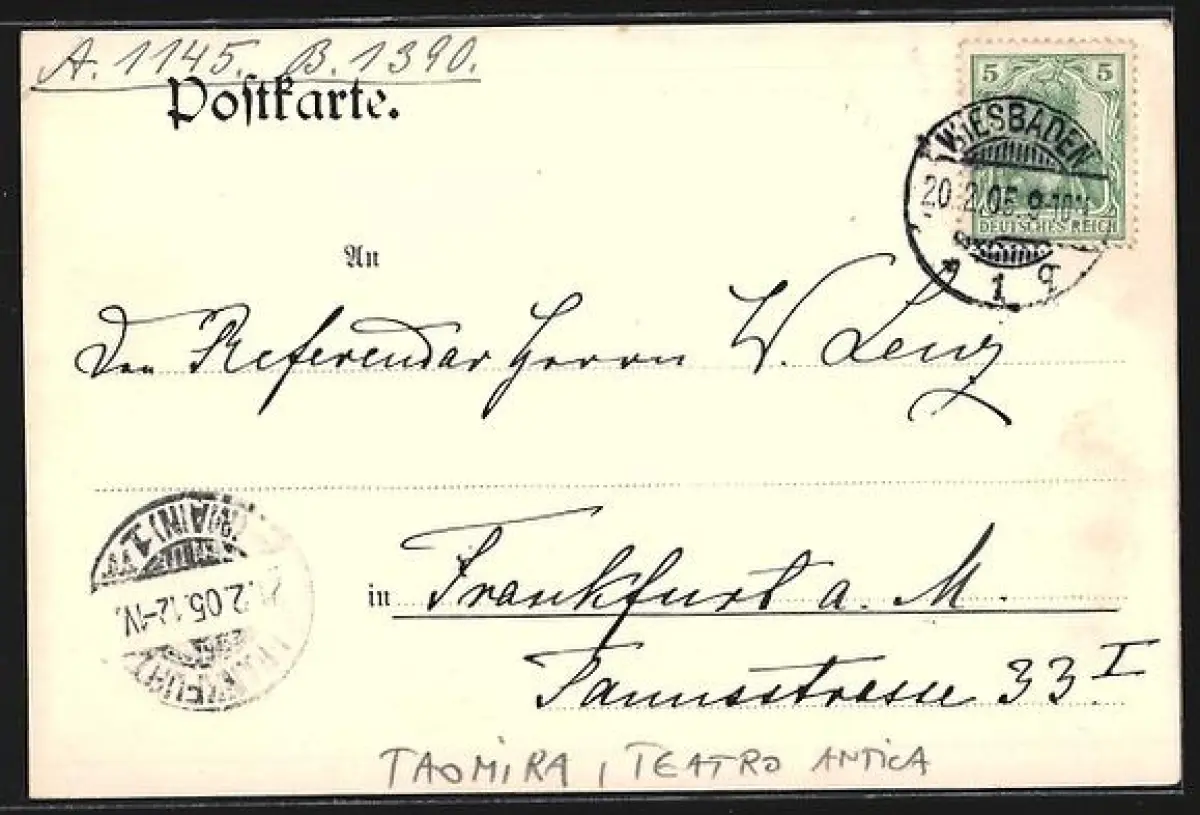 A. 1145. B. 1390.
Postkarte.
5 5
DEUTSCHES REICH
WIESBADEN
20.2.05. 9-10
1
An
den Referendar Herrn W. Lenz
in Frankfurt a. M.
Taunusstrasse 33 I
FRANKFURT (MAIN) 1
2.05. 12-1V.
TAOMIRA, TEATRO ANTICA